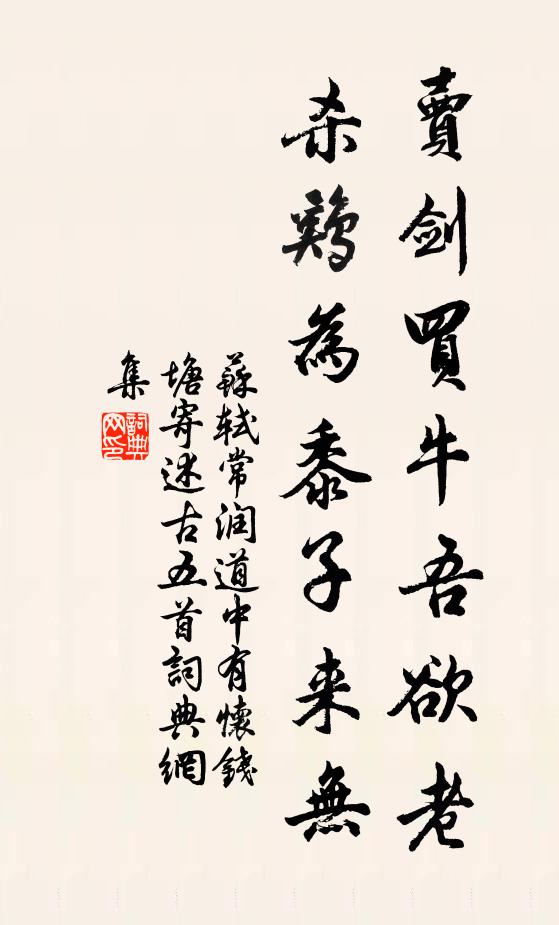 賣劍買牛吾欲老
杀鷄為黍子来無
蘇轼常润道中有懷錢
塘寄述古五首詞典網
集
詞典
网印